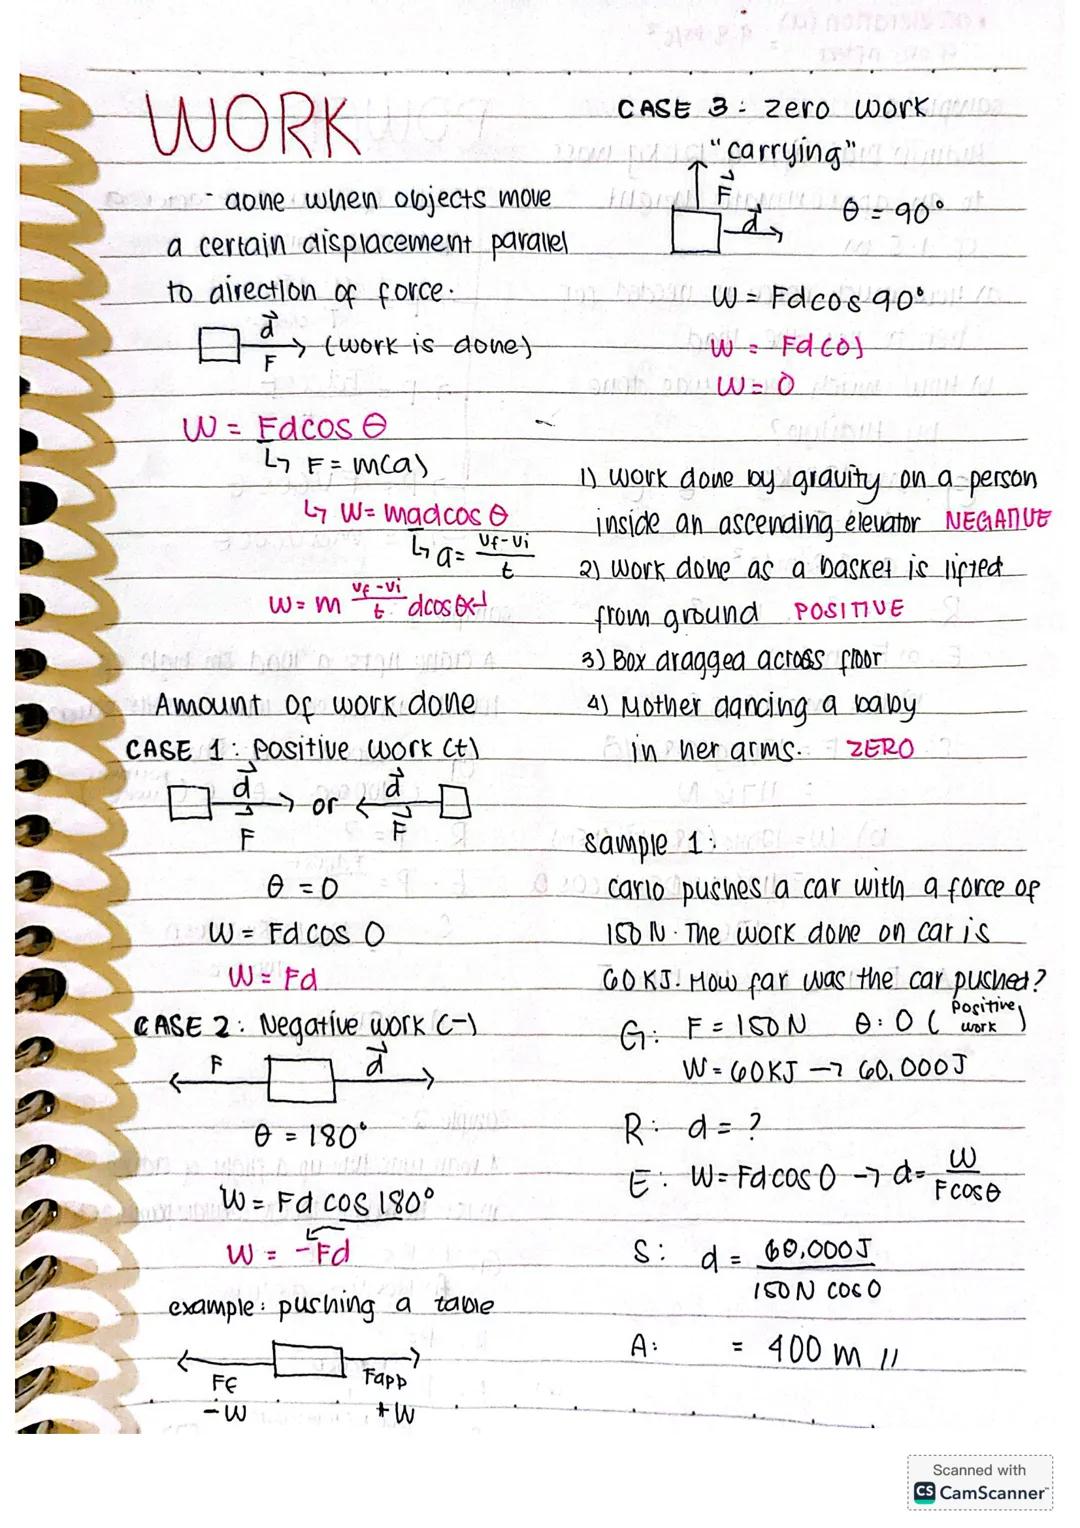 WORK
- done when objects move
a certain displacement parallel
to direction of force.
d
F
(work is done)
W = Fdcos θ
↳ F = m(a)
↳ W= madcos θ
↳ a= vf-vi
t
W= m vf-vi
t
Amount of work done
CASE 1: Positive work (+)
d
F
or
d
F
θ = 0
W = Fd cos 0
W = Fd
CASE 2: Negative work (-)
F
d
θ = 180°
W = Fd cos 180°
W = -Fd
example: pushing a table
Fapp
-W
+W
CASE 3: zero work
"carrying"
F
d
θ = 90°
W = Fdcos 90°
W = Fd (0)
W = 0
1) Work done by gravity on a person
inside an ascending elevator NEGATIVE
2) Work done as a basket is lifted
from ground POSITIVE
3) Box dragged across floor
4) Mother dancing a baby
in her arms. ZERO
sample 1:
Carlo pushes a car with a force of
150 N. The work done on car is
60 KJ. How far was the car pushed?
G: F = 150 N θ: 0 (Positive work)
W = 60KJ → 60,000J
R: d = ?
E: W= Fd cos 0 → d= W
F cos θ
S: d = 60,000J
150 N cos 0
A: = 400 m //
Scanned with
CS CamScanner